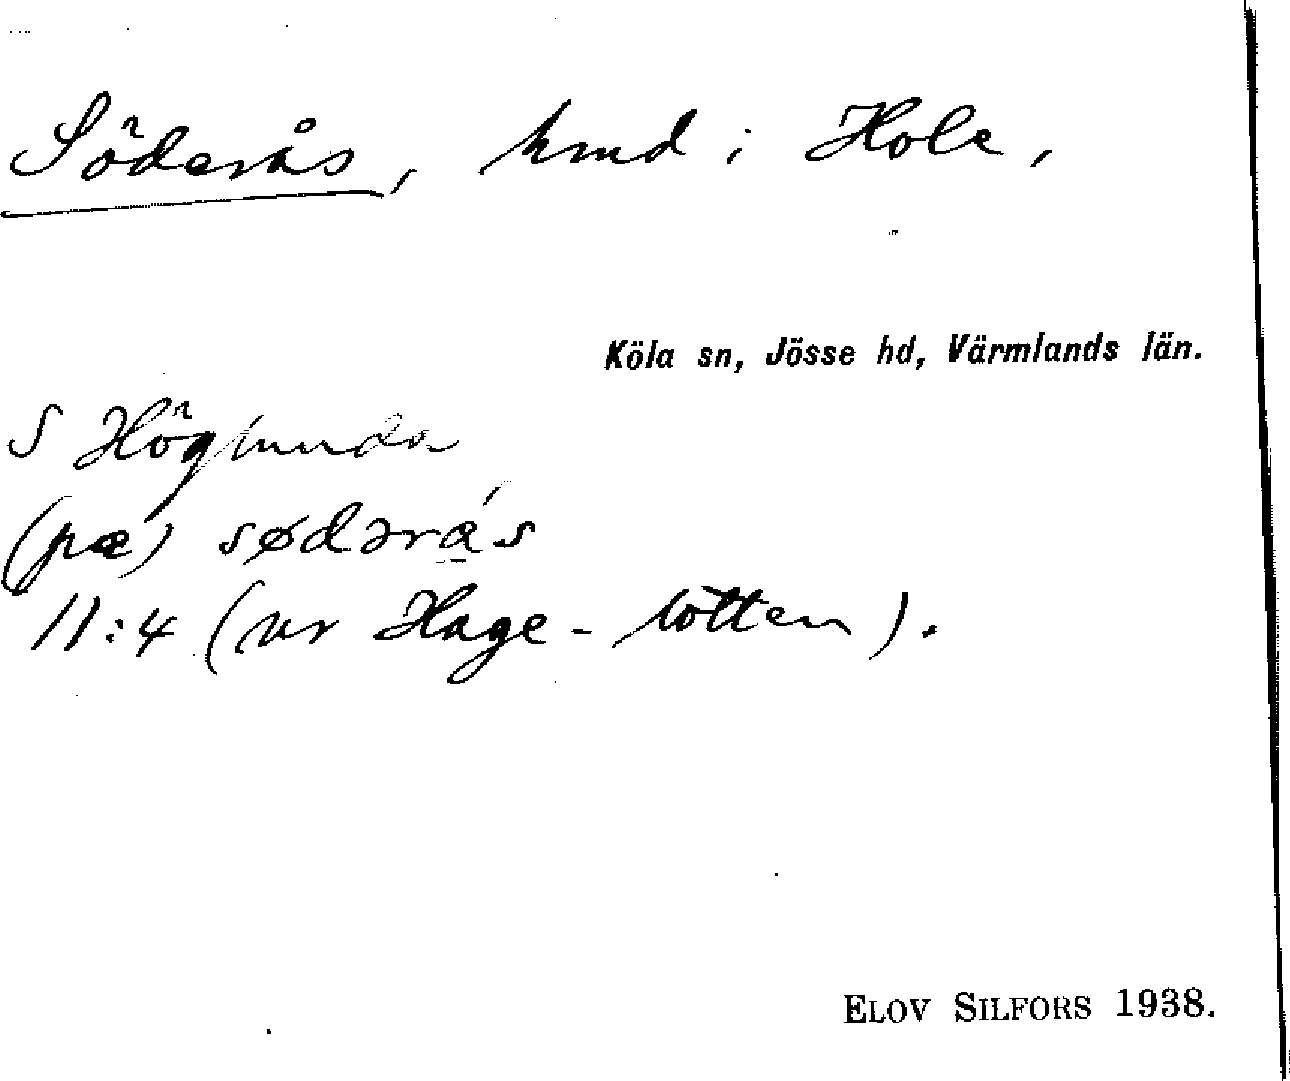 Söderås, hmd i Hole,
Köla sn, Jösse hd, Värmlands län.
S Höglunda
(pæ) sødərá̱s
11:4 (ur Hage-lotten).
ELOV SILFORS 1938.